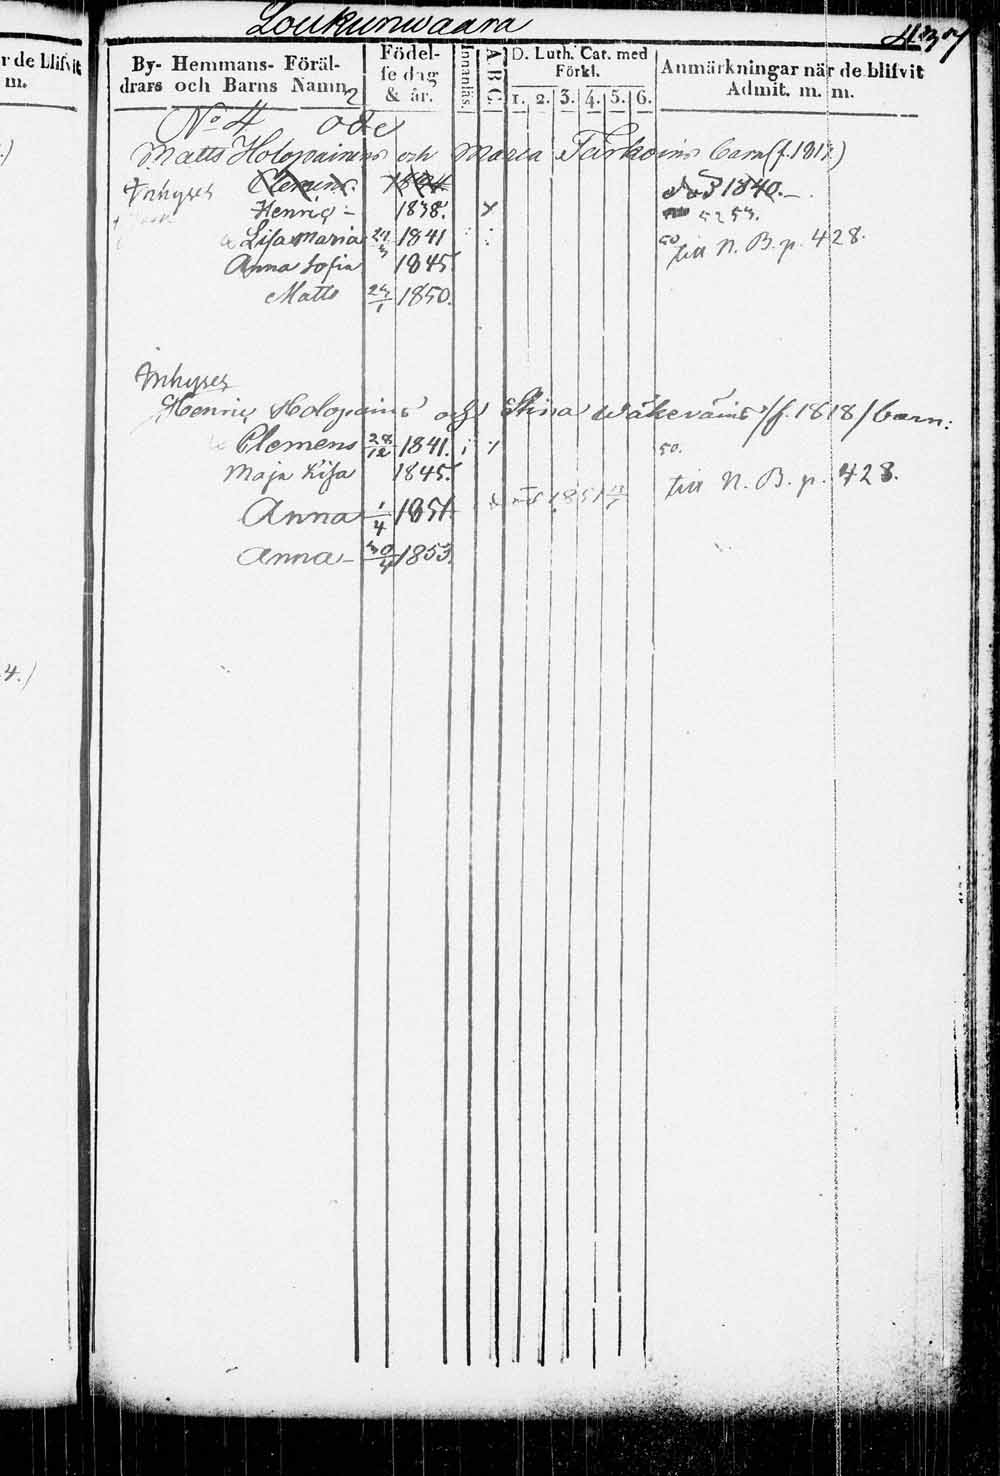 Loukunwaara
437
r de blifvit
m.
By- Hemmans- Föräl-
drars och Barns Namn
Födel-
se dag
& år.
Innanläs.
A B C
D. Luth. Cat. med
Förkl.
1. 2. 3. 4. 5. 6.
Anmärkningar när de blifvit
Admit. m. m.
No 4 öde
Matts Holopainens och Maria Turkoins barn (f. 1817)
Inhyses Clemens. 1834 död 1840.
Henric 1838. x 52 53.
Lisa Maria 1841 50
till N. B. p. 428.
Anna Sofia 1845.
Matts 24/1 1850.
Inhyses
Henric Holopains och Stina Wäkeväins /f. 1818/ barn:
Clemens 28/12 1841. 50.
Maja Lisa 1845. till N. B. p. 428.
Anna 1/4 1851. 1851
Anna 30/4 1853.
4.)